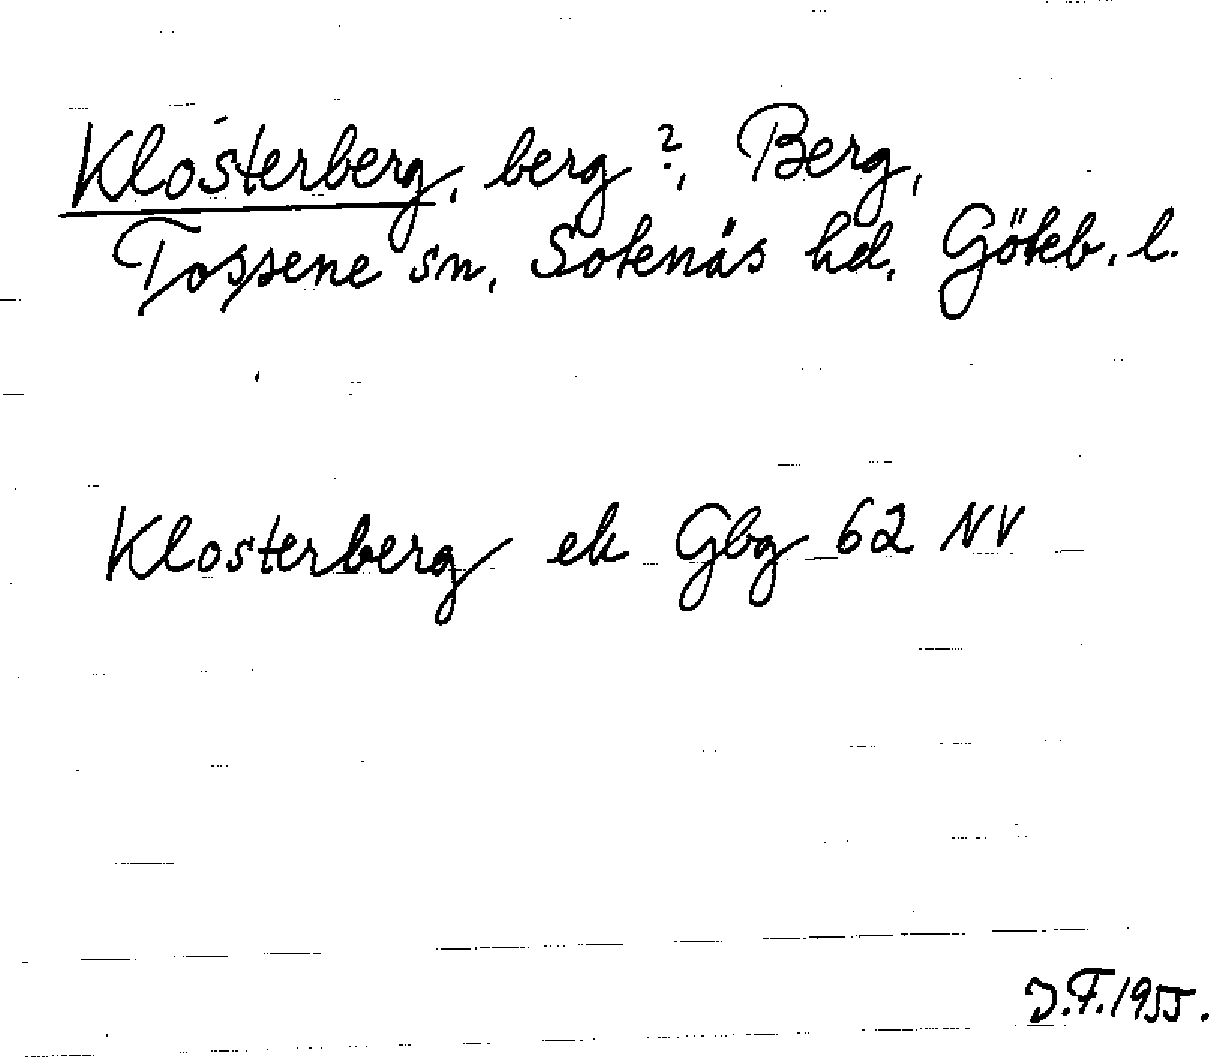 Klosterberg, berg?, Berg,
Tossene sn, Sotenäs hd, Göteb. l.
Klosterberg ek Gbg 62 NV
J.F. 1955.